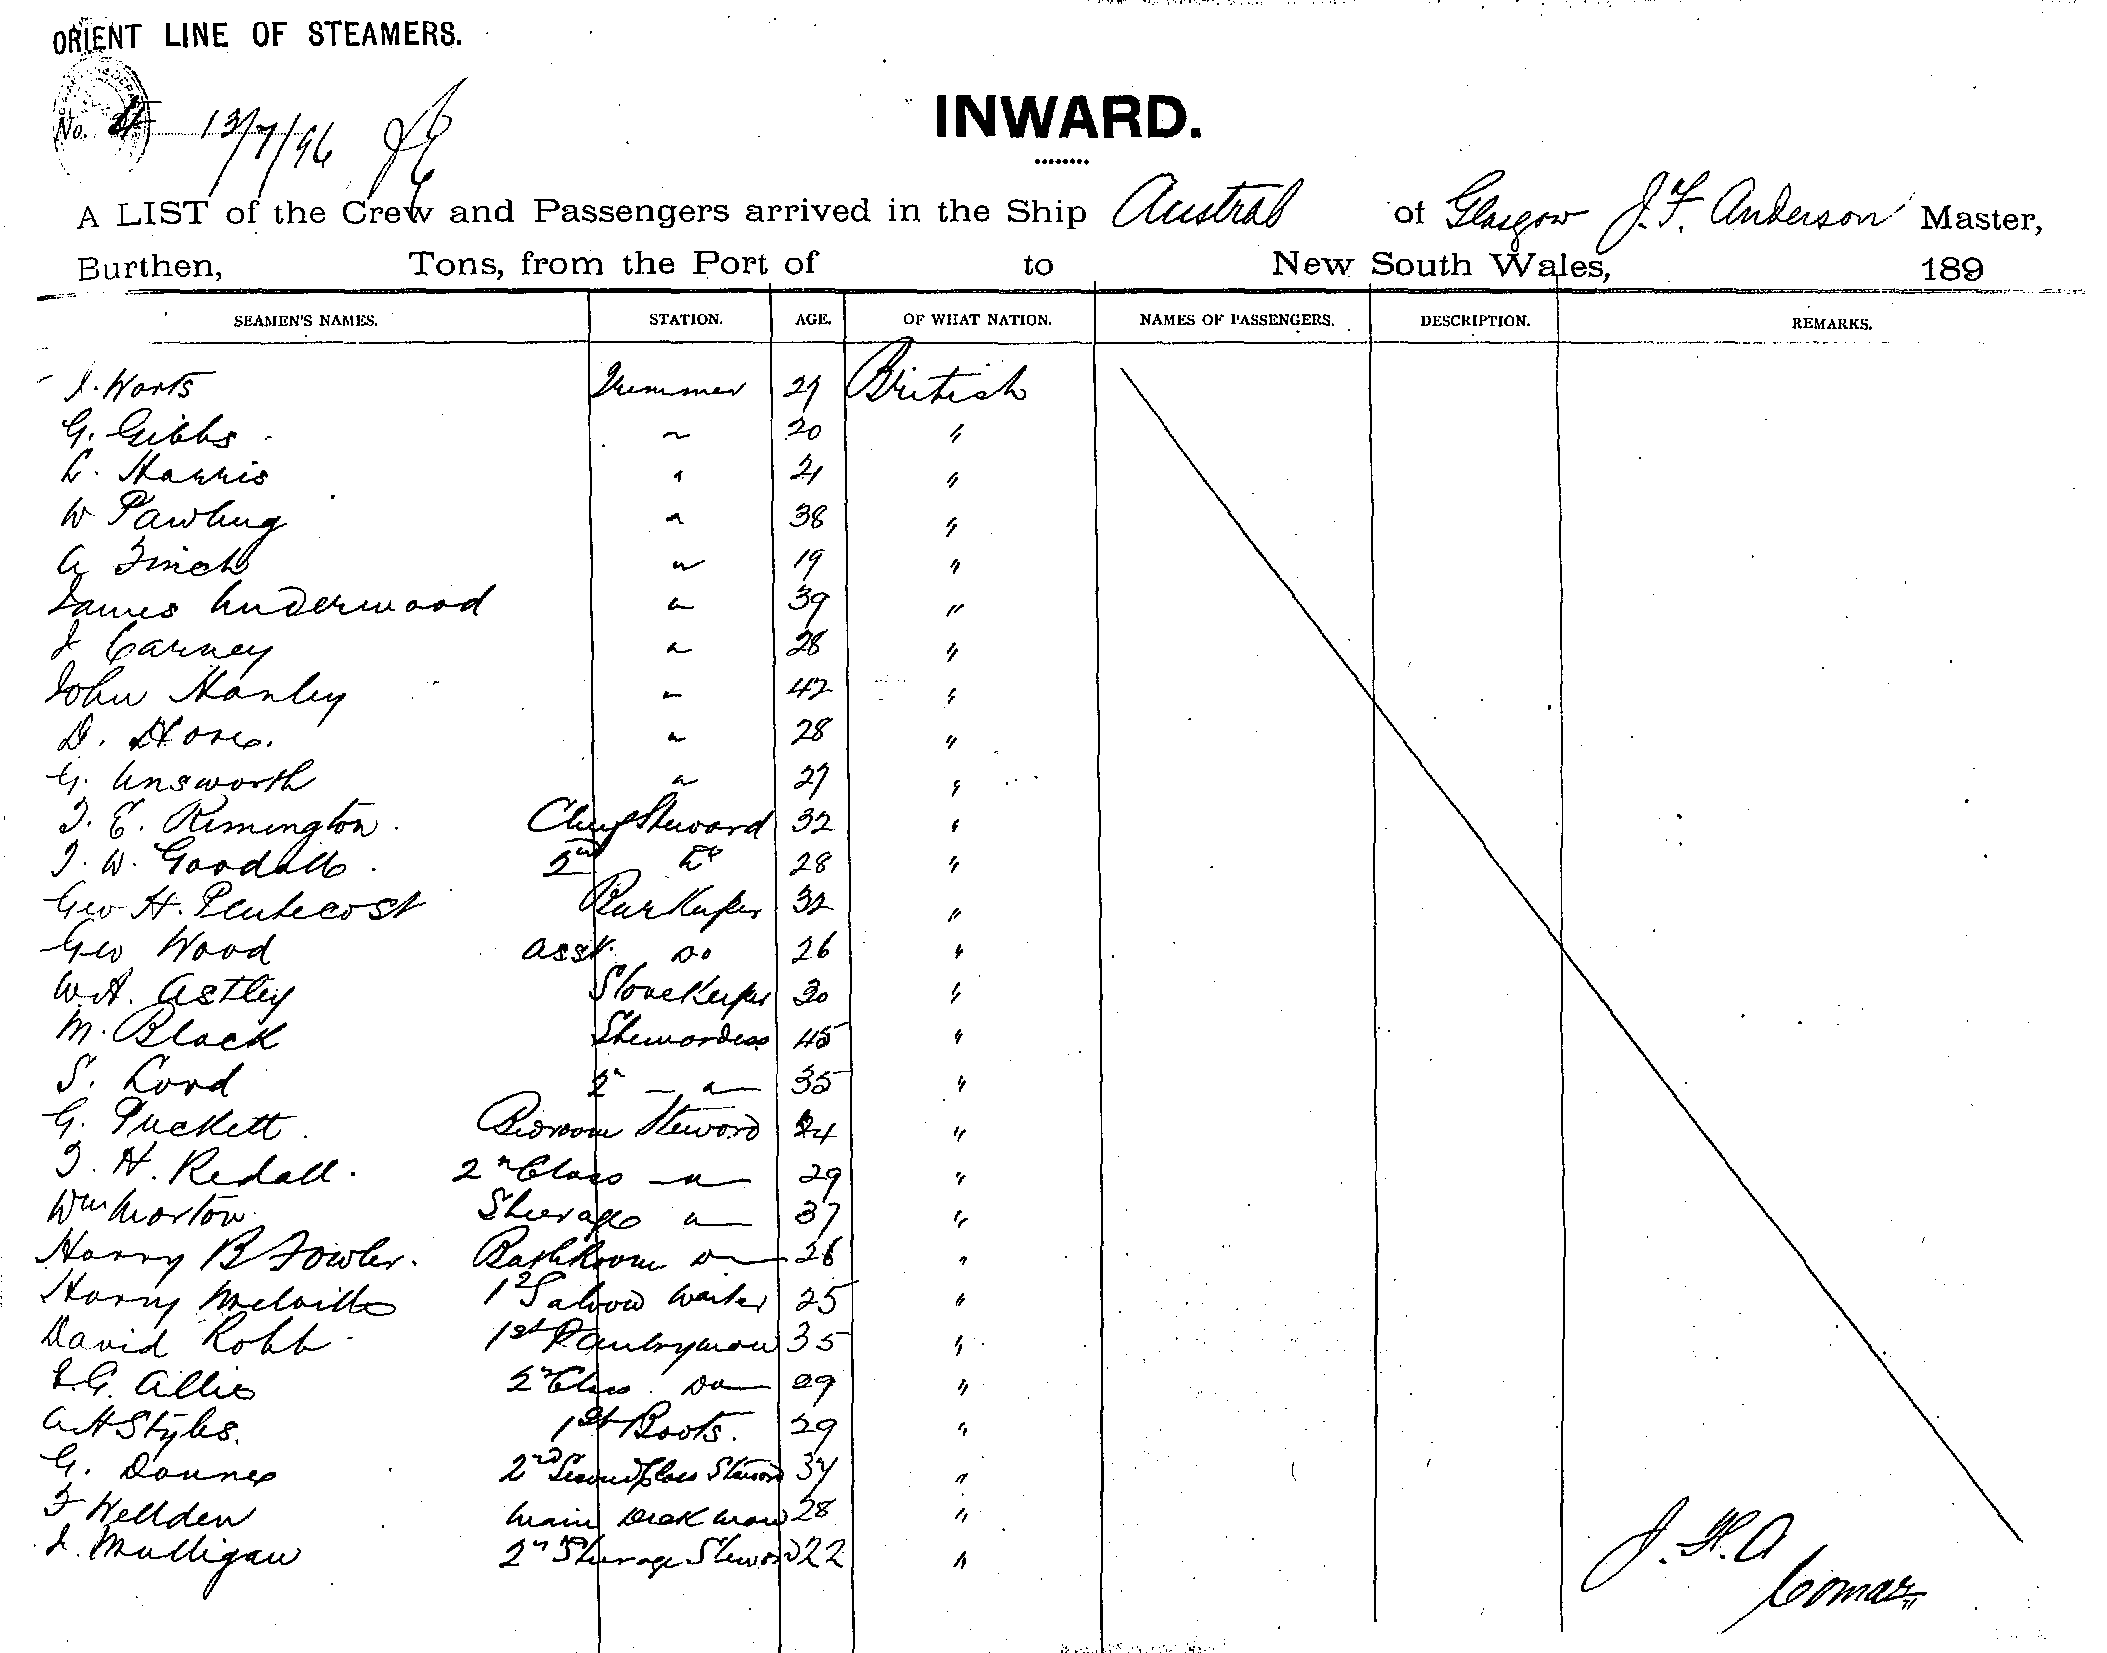 ORIENT LINE OF STEAMERS.
No. 13/7/96
INWARD.
A LIST of the Crew and Passengers arrived in the Ship Austral of Glasgow J. F. Anderson Master,
Burthen, Tons, from the Port of to New South Wales, 189
SEAMEN'S NAMES. STATION. AGE. OF WHAT NATION. NAMES OF PASSENGERS. DESCRIPTION. REMARKS.
J. Worts Trimmer 27 British
G. Gibbs 〃 20 〃
C. Harris 〃 21 〃
W Pawling 〃 38 〃
A Finch 〃 19 〃
James Underwood 〃 39 〃
J Carney 〃 28 〃
John Hanley 〃 42 〃
D. 〃 28 〃
G. Unsworth 〃 27 〃
T. E. Rimington Chief Steward 32 〃
T. W. Goodall 2nd Do 28 〃
Geo H. Pentecost Barkeeper 32 〃
Geo Wood Asst. Do 26 〃
W.A. Astley Storekeeper 30 〃
M. Black Stewardess 45 〃
S. Lord 2n — 〃 — 35 〃
G. Puckett Bedroom Steward 24 〃
T. H. Redall. 2n Class — 〃 — 29 〃
Wm Morton Steerage 〃 — 37 〃
Harry B Fowler. Bathroom Do — 26 〃
Harry Melville 1st Saloon Waiter 25 〃
David Robb 1st Pantryman 35 〃
J.G. Allis 2n Class Do — 29 〃
A H Styles. 1st Boots. 29 〃
G. Downes 2nd Second Class Steward 34 〃
F Wellden Main Deck Man 28 〃
J. Mulligan 2n Steerage Steward 22 〃
J. F. A
Comdr